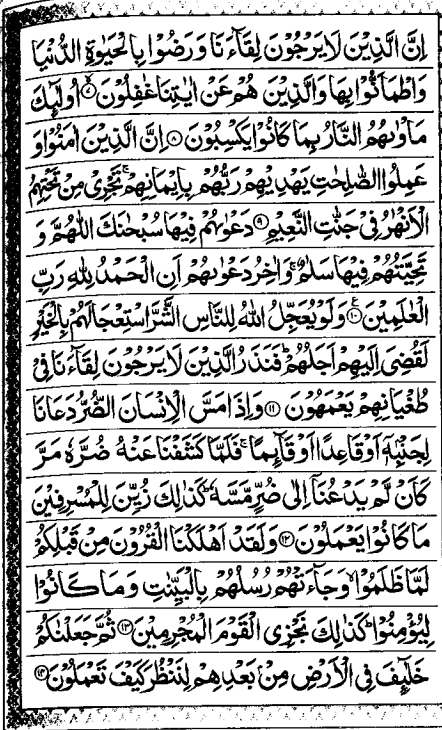 اِنَّ الَّذِيۡنَ لَا يَرۡجُوۡنَ لِقَآءَنَا وَرَضُوۡا بِالۡحَيٰوةِ الدُّنۡيَا
وَاطۡمَاَنُّوۡا بِهَا وَالَّذِيۡنَ هُمۡ عَنۡ اٰيٰتِنَا غٰفِلُوۡنَ ۙ‏﴿۷﴾ اُولٰٓٮِٕكَ
مَاۡوٰٮهُمُ النَّارُ بِمَا كَانُوۡا يَكۡسِبُوۡنَ ﴿۸﴾ اِنَّ الَّذِيۡنَ اٰمَنُوۡا وَ
عَمِلُوا الصّٰلِحٰتِ يَهۡدِيۡهِمۡ رَبُّهُمۡ بِاِيۡمَانِهِمۡۚ تَجۡرِىۡ مِنۡ تَحۡتِهِمُ
الۡاَنۡهٰرُ فِىۡ جَنّٰتِ النَّعِيۡمِ ﴿۹﴾ دَعۡوٰٮهُمۡ فِيۡهَا سُبۡحٰنَكَ اللّٰهُمَّ وَ
تَحِيَّتُهُمۡ فِيۡهَا سَلٰمٌۚ وَاٰخِرُ دَعۡوٰٮهُمۡ اَنِ الۡحَمۡدُ لِلّٰهِ رَبِّ
الۡعٰلَمِيۡنَ ﴿۱۰﴾ وَلَوۡ يُعَجِّلُ اللّٰهُ لِلنَّاسِ الشَّرَّ اسۡتِعۡجَالَهُمۡ بِالۡخَيۡرِ
لَقُضِىَ اِلَيۡهِمۡ اَجَلُهُمۡؕ فَنَذَرُ الَّذِيۡنَ لَا يَرۡجُوۡنَ لِقَآءَنَا فِىۡ
طُغۡيَانِهِمۡ يَعۡمَهُوۡنَ ﴿۱۱﴾ وَاِذَا مَسَّ الۡاِنۡسَانَ الضُّرُّ دَعَانَا
لِجَنۡۢبِهٖۤ اَوۡ قَاعِدًا اَوۡ قَآٮِٕمًاۚ فَلَمَّا كَشَفۡنَا عَنۡهُ ضُرَّهٗ مَرَّ
كَاَنۡ لَّمۡ يَدۡعُنَاۤ اِلٰى ضُرٍّ مَّسَّهٗؕ كَذٰلِكَ زُيِّنَ لِلۡمُسۡرِفِيۡنَ
مَا كَانُوۡا يَعۡمَلُوۡنَ ﴿۱۲﴾ وَلَقَدۡ اَهۡلَكۡنَا الۡقُرُوۡنَ مِنۡ قَبۡلِكُمۡ
لَمَّا ظَلَمُوۡاۙ وَجَآءَتۡهُمۡ رُسُلُهُمۡ بِالۡبَيِّنٰتِ وَمَا كَانُوۡا
لِيُؤۡمِنُوۡاؕ كَذٰلِكَ نَجۡزِى الۡقَوۡمَ الۡمُجۡرِمِيۡنَ ﴿۱۳﴾ ثُمَّ جَعَلۡنٰكُمۡ
خَلٰٓٮِٕفَ فِى الۡاَرۡضِ مِنۡۢ بَعۡدِهِمۡ لِنَنۡظُرَ كَيۡفَ تَعۡمَلُوۡنَ ﴿۱۴﴾